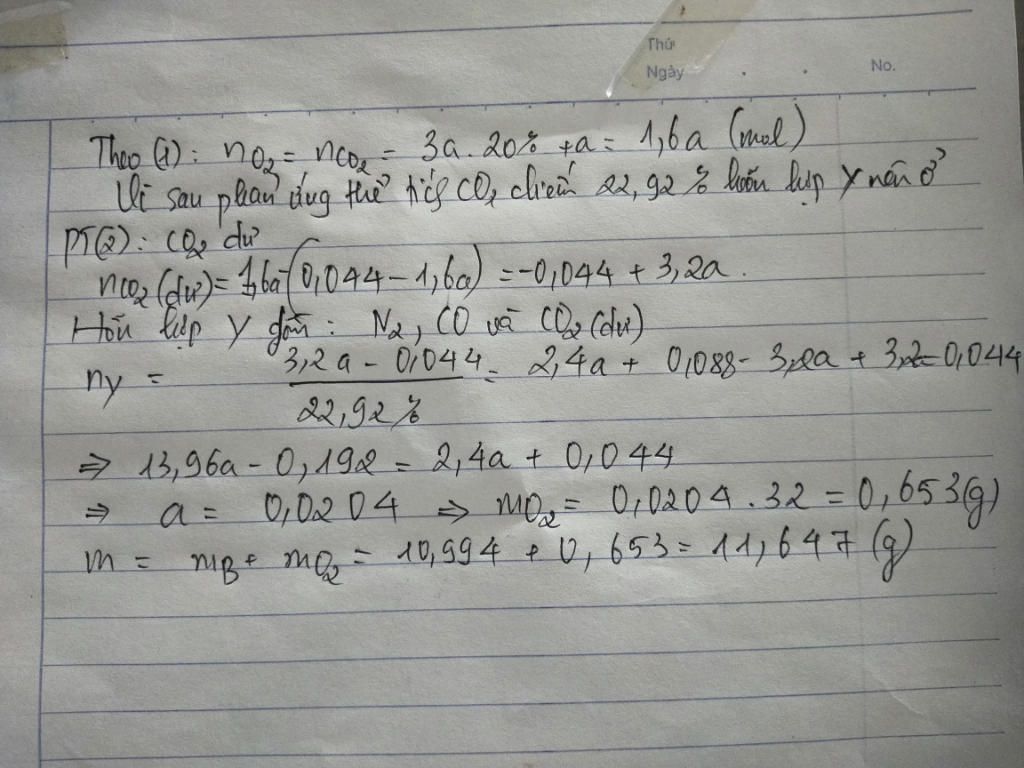 Thứ
Ngày . . No.
Theo (1): nO2 = nCO2 = 3a . 20% + a = 1,6a (mol)
Vì sau phản ứng thể tích CO2 chiếm 22,92% hỗn hợp Y nên ở
PT(2): CO2 dư
nCO2 (dư) = 1,6a - (0,044 - 1,6a) = -0,044 + 3,2a.
Hỗn hợp Y gồm: N2, CO và CO2 (dư)
nY = (3,2a - 0,044) / 22,92% = 2,4a + 0,088 - 3,2a + 3,2 - 0,044
⇒ 13,96a - 0,192 = 2,4a + 0,044
⇒ a = 0,0204 ⇒ mO2 = 0,0204 . 32 = 0,653 (g)
m = mB + mO2 = 10,994 + 0,653 = 11,647 (g)